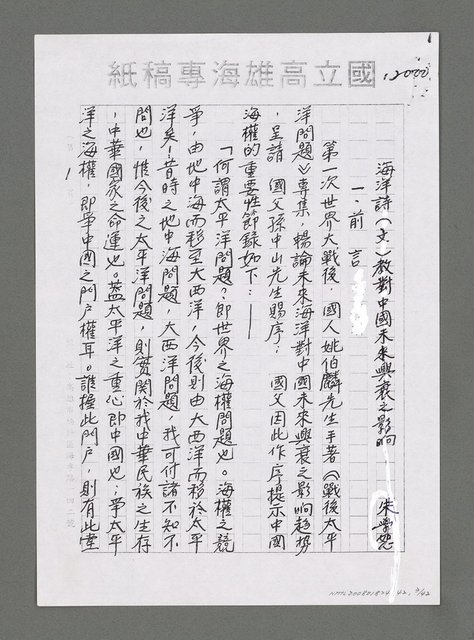 國立高雄海專稿紙
,2000
海洋詩(文)教對中國未來興衰之影响 朱學恕
一、前言
第一次世界大戰後,國人姚伯麟先生手著《戰後太平
洋問題》專集,暢論未來海洋對中國未來興衰之影响趨勢
,呈請 國父孫中山先生賜序, 國父因此作序提示中國
海權的重要性節錄如下:——
「何謂太平洋問題?即世界之海權問題也。海權之競
爭,由地中海而移至大西洋,今後則由大西洋而移於太平
洋矣!昔時之地中海問題,大西洋問題,我可付諸不知不
問也,惟今後之太平洋問題,則實關於我中華民族之生存
,中華國家之命運也。蓋太平洋之重心即中國也;爭太平
洋之海權,即爭中國之門户權耳。誰握此門户,則有此堂
1
NMTL200801824-42, 3/42